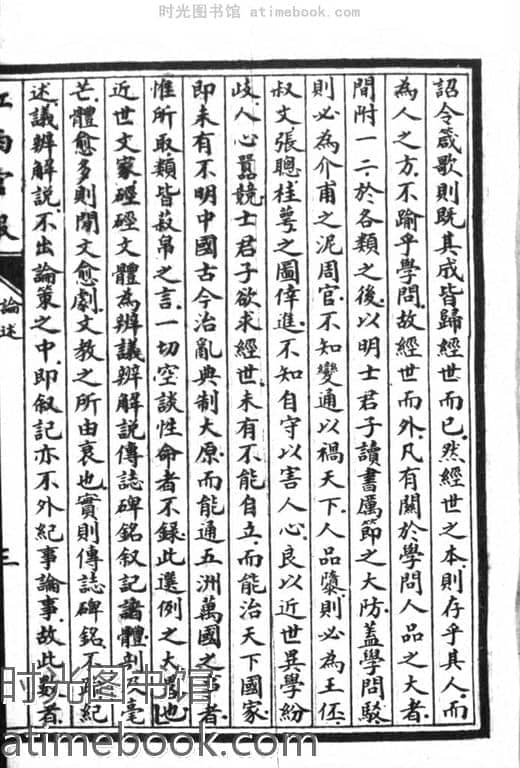 时光图书馆 atimebook.com
詔令箴歌則既具成皆歸經世而已然經世之本則存乎其人而
為人之方不踰乎學問故經世而外凡有關於學問人品之大者
間附一二於各類之後以明士君子讀書厲節之大防蓋學問駁
則必為介甫之泥周官不知變通以禍天下人品隳則必為王伾
叔文張聰桂萼之圖倖進不知自守以害人心良以近世異學紛
歧人心囂競士君子欲求經世未有不能自立而能治天下國家
即未有不明中國古今治亂典制大原而能通五洲萬國之者
惟所取類皆菽帛之言一切空談性命者不錄此選例之大也
近世文家硜硜文體為辨議辨解說傳誌碑銘叙記諸體剖及毫
芒體愈多則閒文愈劇文教之所由衰也實則傳誌碑銘不紀
述議辨解說不出論策之中即叙記亦不外紀事論事故此數者
論述
三
时光图书馆
atimebook.com